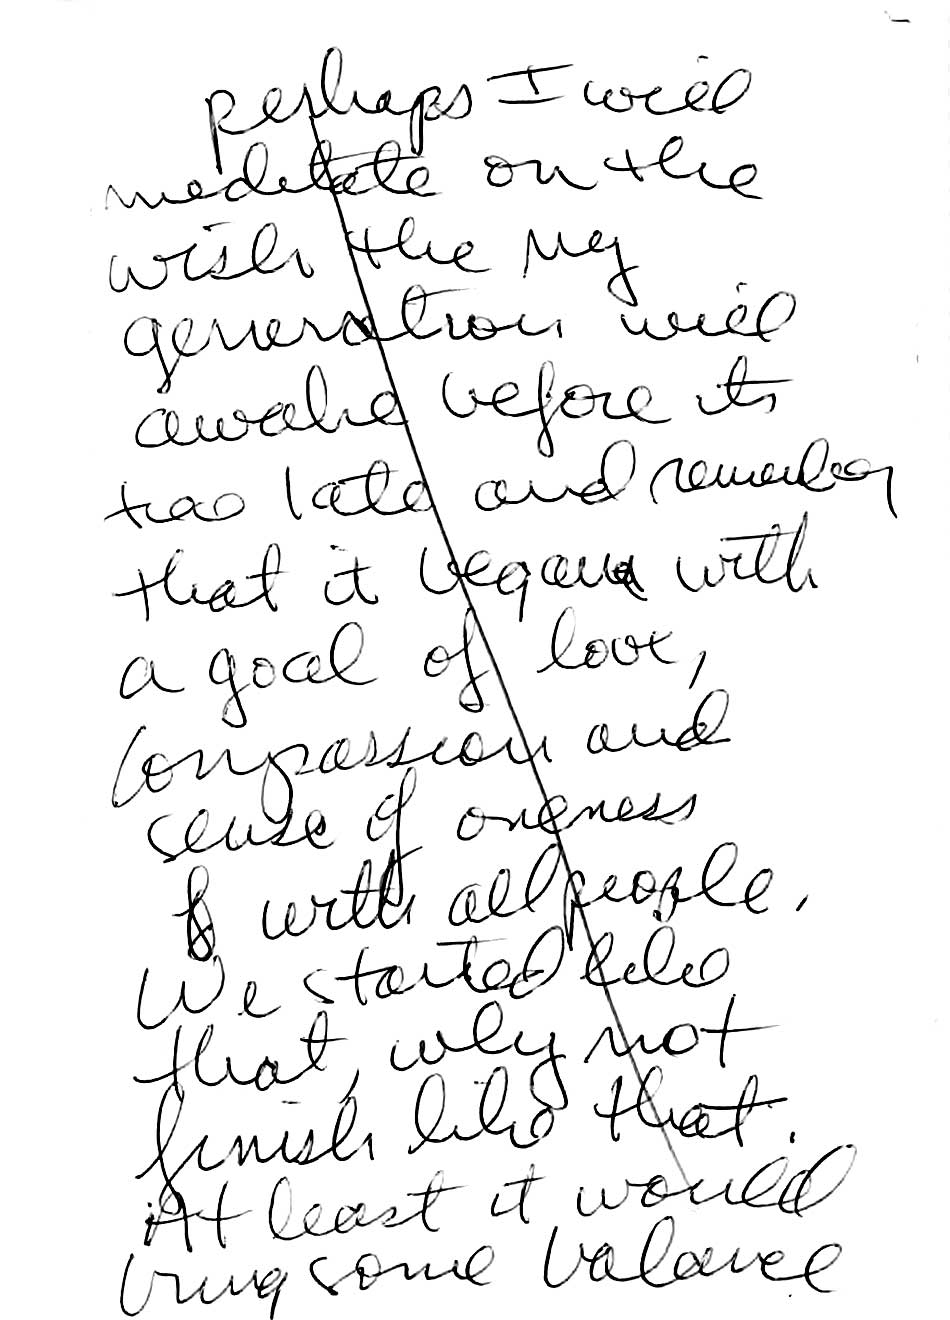 perhaps I will
meditate on the
wish the my
generation will
awake before its
too late and remember
that it began with
a goal of love,
compassion and
sense of oneness
with all people.
We started like
that, why not
finish like that.
At least it would
bring some balance